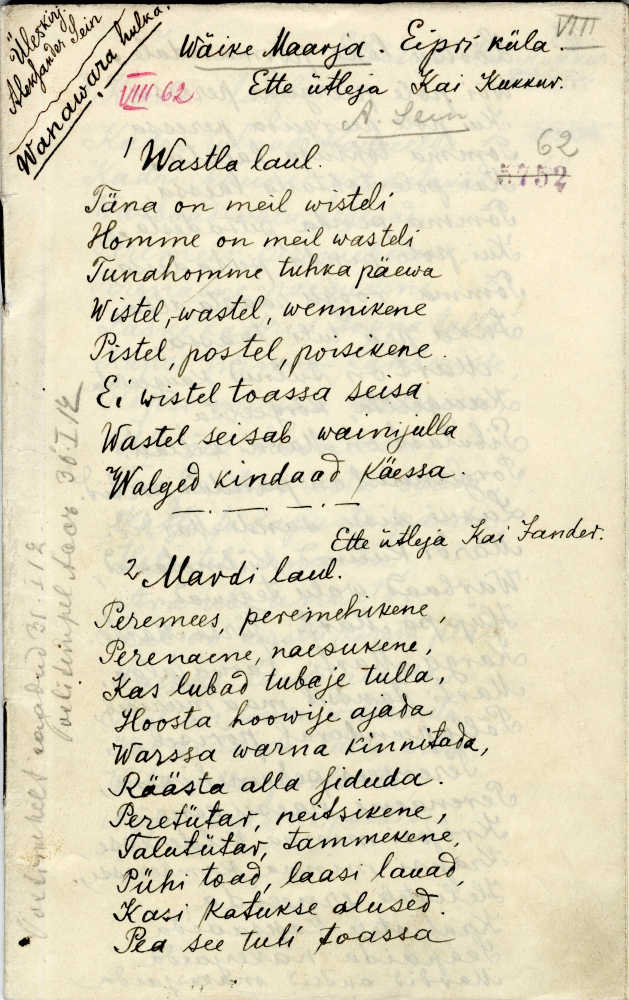 Üleskirj.
Aleksander Sein
Wanawara hulka.
VIII 62
Wäike Maarja. Eipri küla.
VIII
Ette ütleja Kai Kukkur.
A. Sein
62
5752
1 Wastla laul.
Täna on meil wisteli
Homme on meil wasteli
Tunahomme tuhka päewa
Wistel, wastel, wennikene
Pistel, postel, poisikene.
Ei wistel toassa seisa
Wastel seisab wainijulla
Walged kindaad käessa.
Ette ütleja Kai Sander.
2 Mardi laul.
Peremees, peremehikene,
Perenaene, naesukene,
Kas lubad tubaje tulla,
Hoosta hoowije ajada
Warssa warna kinnitada,
Räästa alla siduda.
Peretütar, neitsikene,
Talutütar, tammekene,
Pühi toad, laasi lauad,
Kasi katukse alused.
Pea see tuli toassa